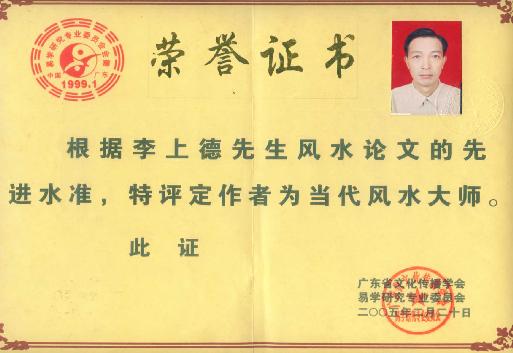 易学研究专业委员会会徽
中国 广东
1999.1
荣誉证书
根据李上德先生风水论文的先
进水准，特评定作者为当代风水大师。
此证
广东省文化传播学会
易学研究专业委员会
二〇〇五年 月二十日